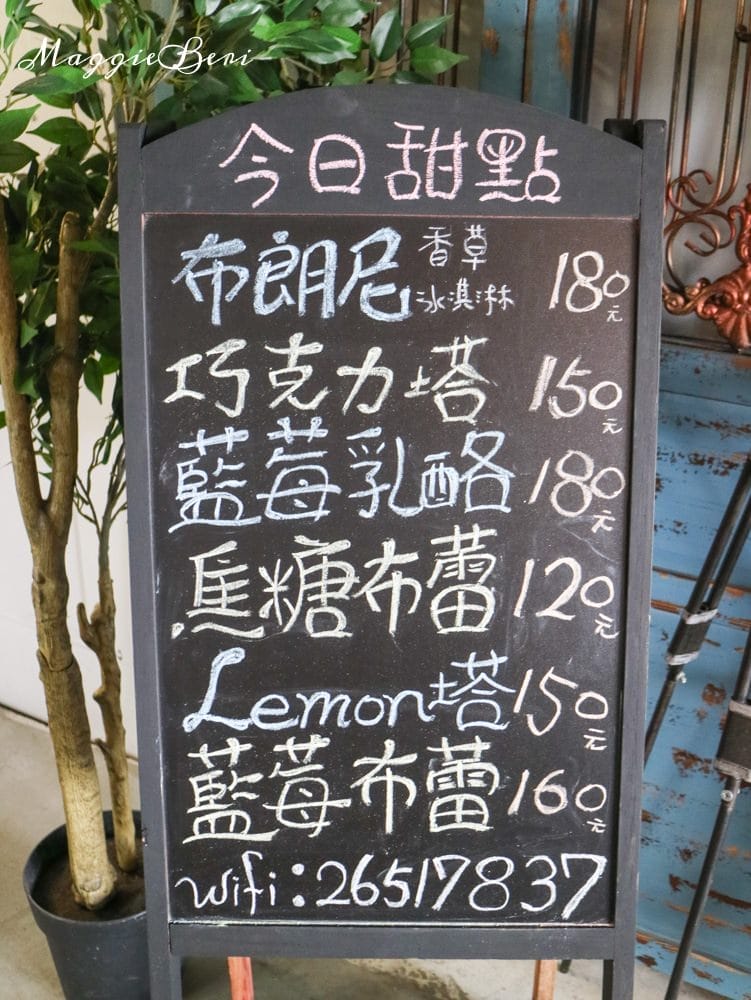 MaggieBeri
今日甜點
布朗尼 香草冰淇淋 180元
巧克力塔 150元
藍莓乳酪 180元
焦糖布蕾 120元
Lemon塔 150元
藍莓布蕾 160元
Wifi:26517837